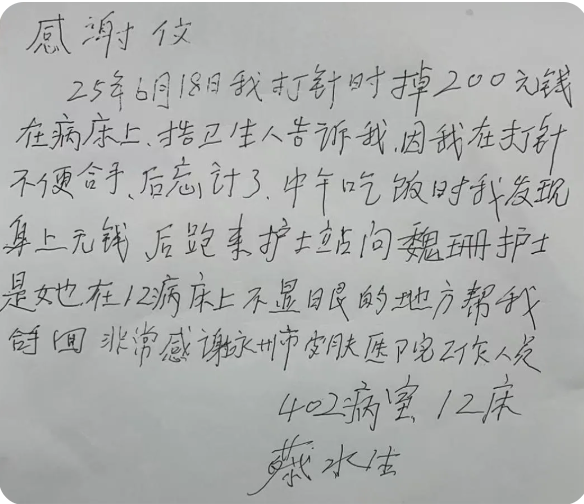 感谢信
25年6月18日我打针时掉200元钱
在病床上、搞卫生人告诉我,因我在打针
不便拿、后忘记了.中午吃饭时我发现
身上无钱 后跑来护士站问魏珊护士
是她在12病床上不显眼的地方帮我
拿回 非常感谢永州市皮肤医院工作人员
402病室 12床
水生